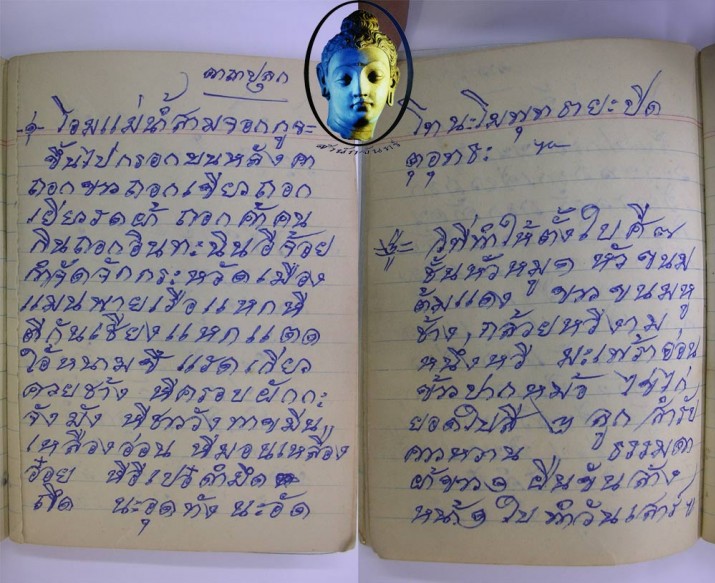 คาถาปลุก
โอมแม่น้ำสามจอกกูจะ
ขึ้นไปกรอกบนหลังคา
ถอกขาวถอกเขียวถอก
เยี่ยวรดผ้า ถอกค้าคน
กินถอกอินทะนินอีจ้อย
กำจัดจักกระหวัดเมือง
แมนพายเรือแหกหี
ตีกันเชียงแหกแตด
ใส้หนาม แรดเกี่ยว
ควยช้าง หีครอบผักกะ
จังมัง หีชาววังทาขมิ้น
เหลืองอ่อน หีมอนเหลือง
จ้อย
นะอุดทัง นะอัด
โทนะโมพุทธายะปิด
ตุอุทธะ
วิธีทำให้ตั้งใบศี ๗
ชั้นหัวหมู ๑ หัว ขนม
ต้มแดง ขาว ขนมหู
ช้าง, กล้วยหวีงาม
หนึ่งหวี มะเพร้าอ่อน
ข้าวปากหม้อ ไข่ไก่
ยอดใบสี ๓ ลูก สำรับ
คาวหวาน ธรรมดา
ผ้าขาว ๑ ผืนขันล้าง
หน้า ๑ ใบ ทำวันเสาร์